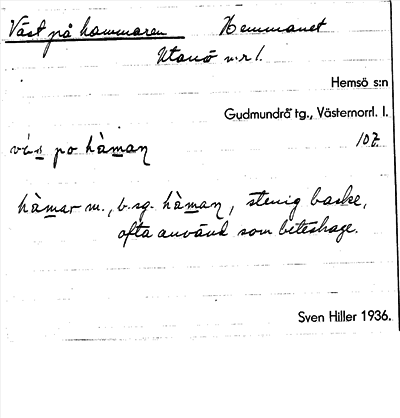 Väst på hammaren Hemmanet
Utanö nr 1.
Hemsö s:n
Gudmundrå tg., Västernorrl. l.
107.
vä́s po hàmaṇ
hàmar m., b.sg. hàmaṇ, stenig backe,
ofta använd som beteshage.
Sven Hiller 1936.